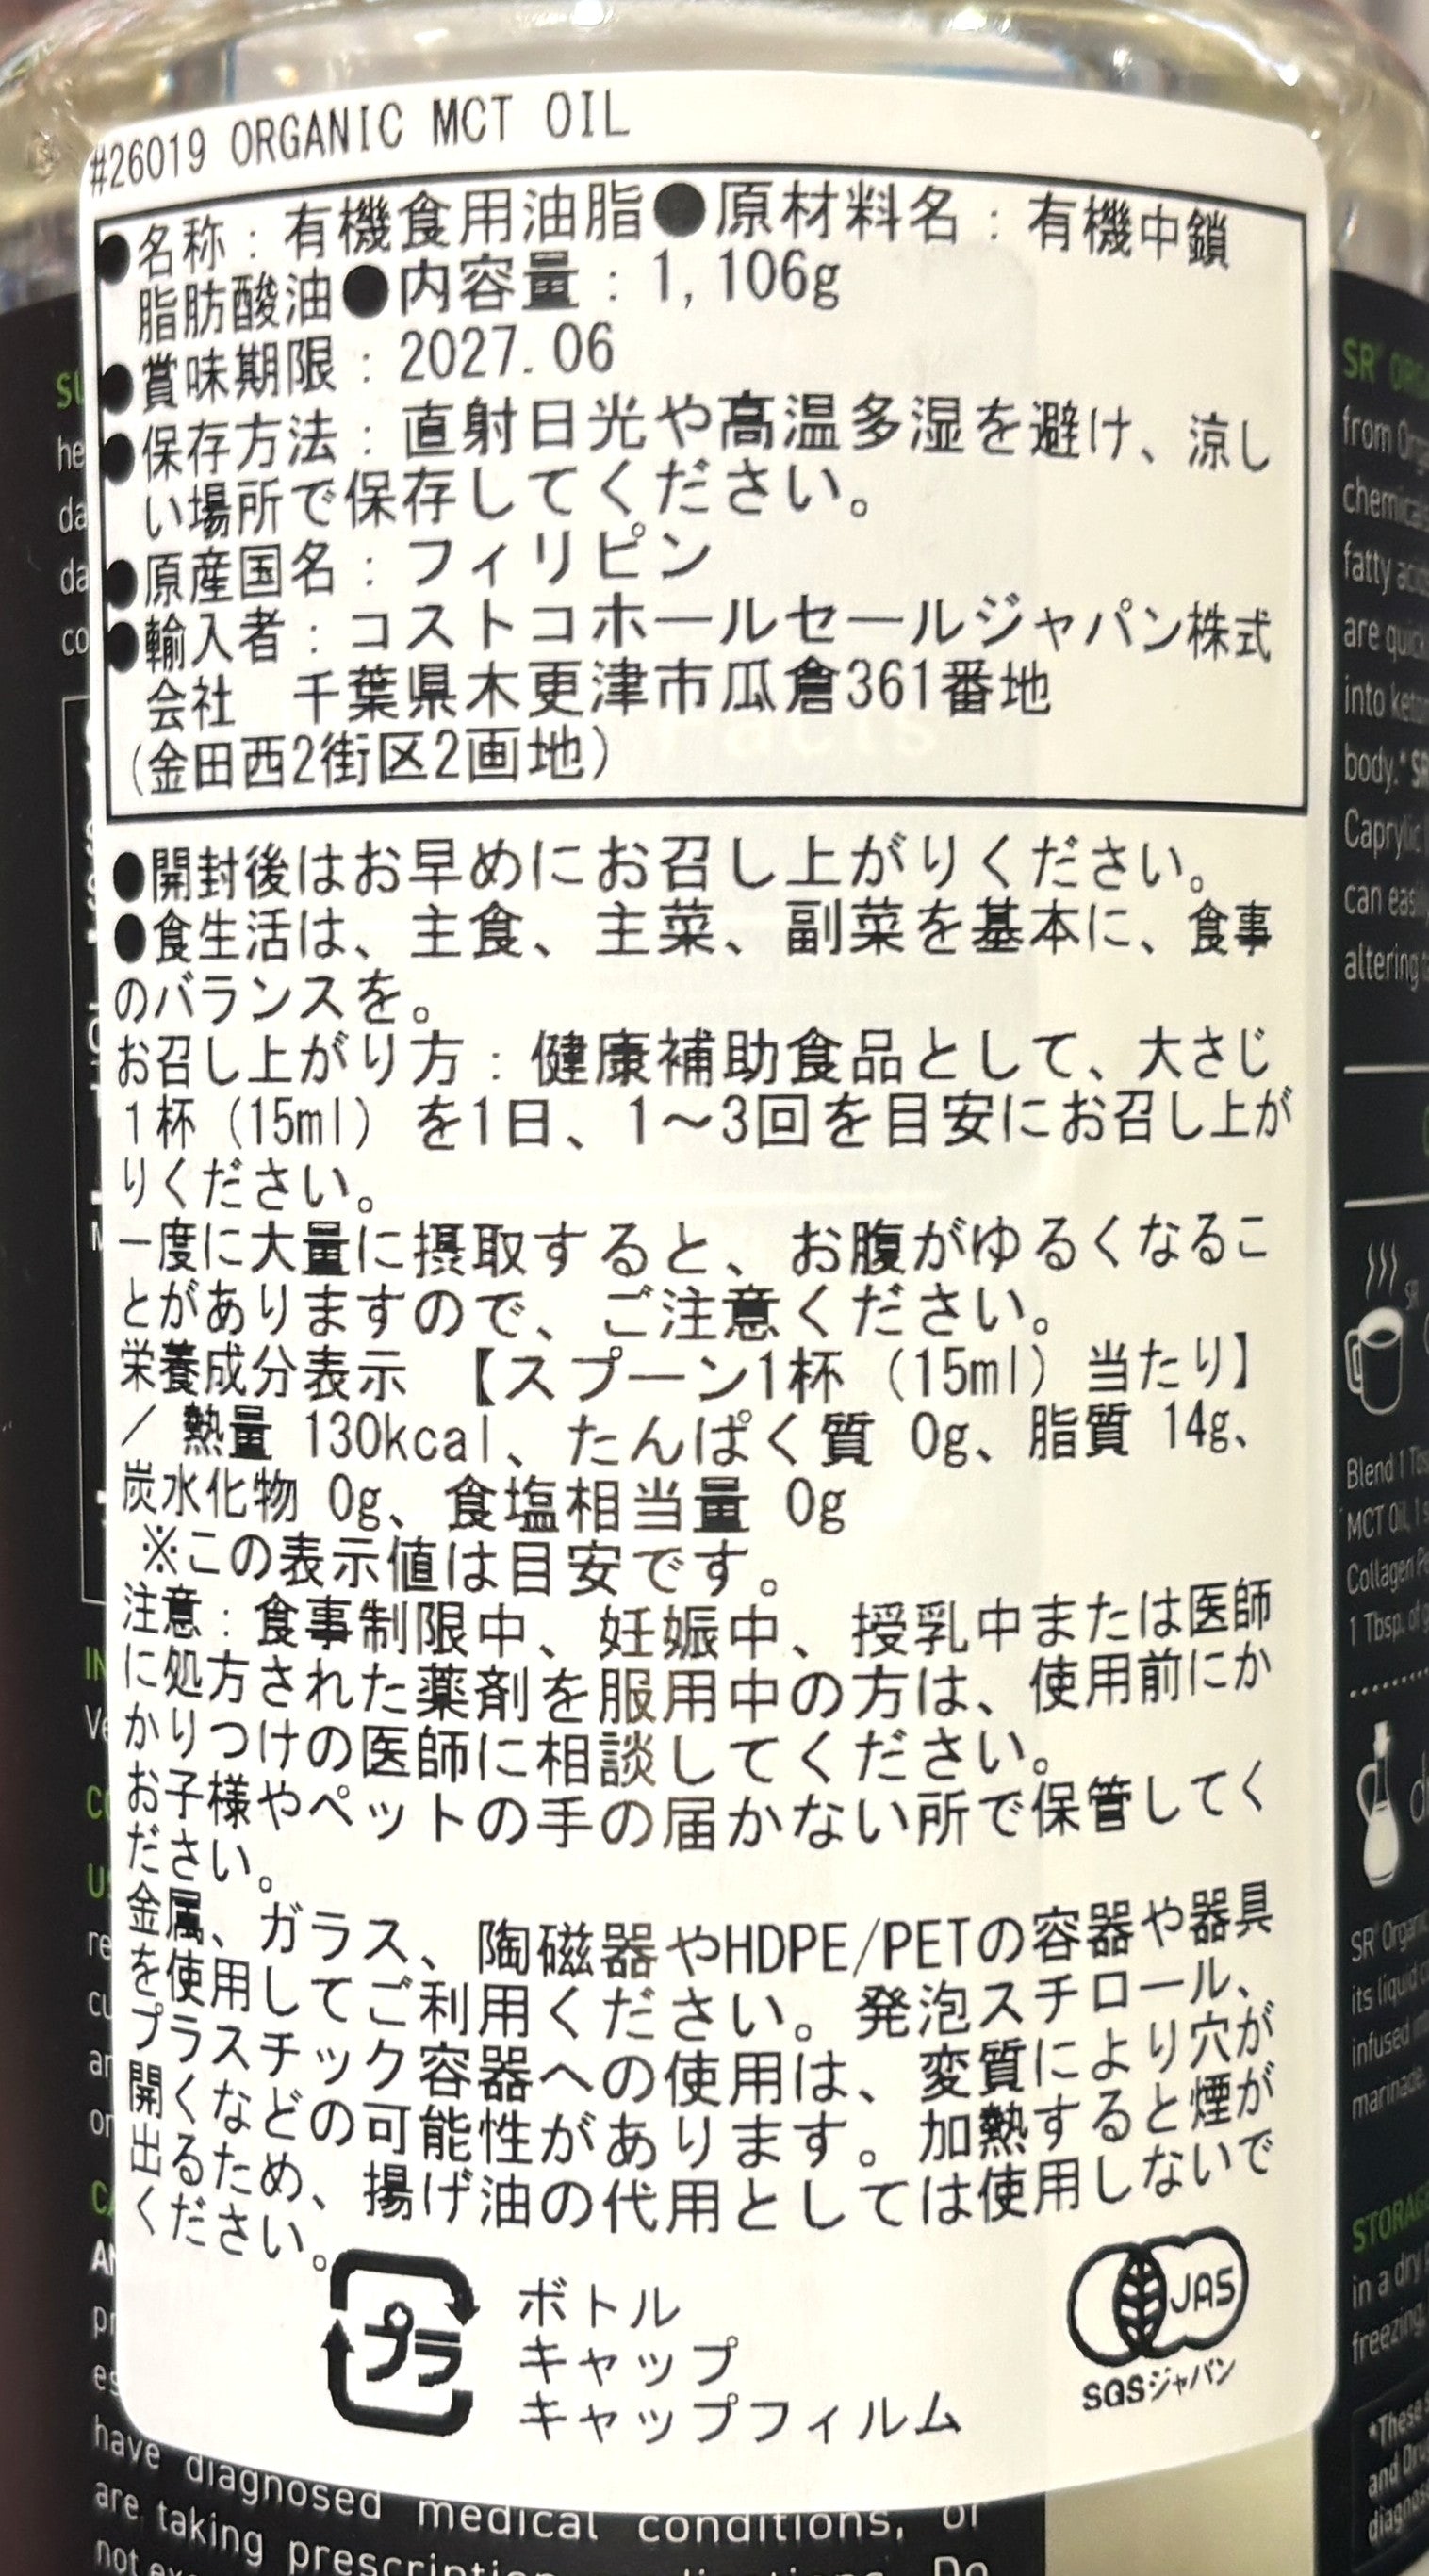 #26019 ORGANIC MCT OIL
●名称：有機食用油脂●原材料名：有機中鎖
脂肪酸油●内容量：1,106g
●賞味期限：2027.06
●保存方法：直射日光や高温多湿を避け、涼し
い場所で保存してください。
●原産国名：フィリピン
●輸入者：コストコホールセールジャパン株式
会社　千葉県木更津市瓜倉361番地
(金田西2街区2画地)
●開封後はお早めにお召し上がりください。
●食生活は、主食、主菜、副菜を基本に、食事
のバランスを。
お召し上がり方：健康補助食品として、大さじ
1杯（15ml）を1日、1～3回を目安にお召し上が
りください。
一度に大量に摂取すると、お腹がゆるくなるこ
とがありますので、ご注意ください。
栄養成分表示　【スプーン1杯（15ml）当たり】
／ 熱量 130kcal、たんぱく質 0g、脂質 14g、
炭水化物 0g、食塩相当量 0g
※この表示値は目安です。
注意：食事制限中、妊娠中、授乳中または医師
に処方された薬剤を服用中の方は、使用前にか
かりつけの医師に相談してください。
お子様やペットの手の届かない所で保管してく
ださい。
金属、ガラス、陶磁器やHDPE/PETの容器や器具
を使用してご利用ください。発泡スチロール、
プラスチック容器への使用は、変質により穴が
開くなどの可能性があります。加熱すると煙が
出るため、揚げ油の代用としては使用しないで
ください。
プラ
ボトル
キャップ
キャップフィルム
JAS
SGSジャパン
have diagnosed medical conditions, or
are taking prescription
not
Do
from
chemical
fatty
are quick
into
body.*
Caprylic
can
altering
Blend 1
MCT Oil, 1
Collagen
1 Tbsp. of
SR Organic
its liquid
infused
marinade.
STORAGE
in a dry
freezing,
*These
and Drug